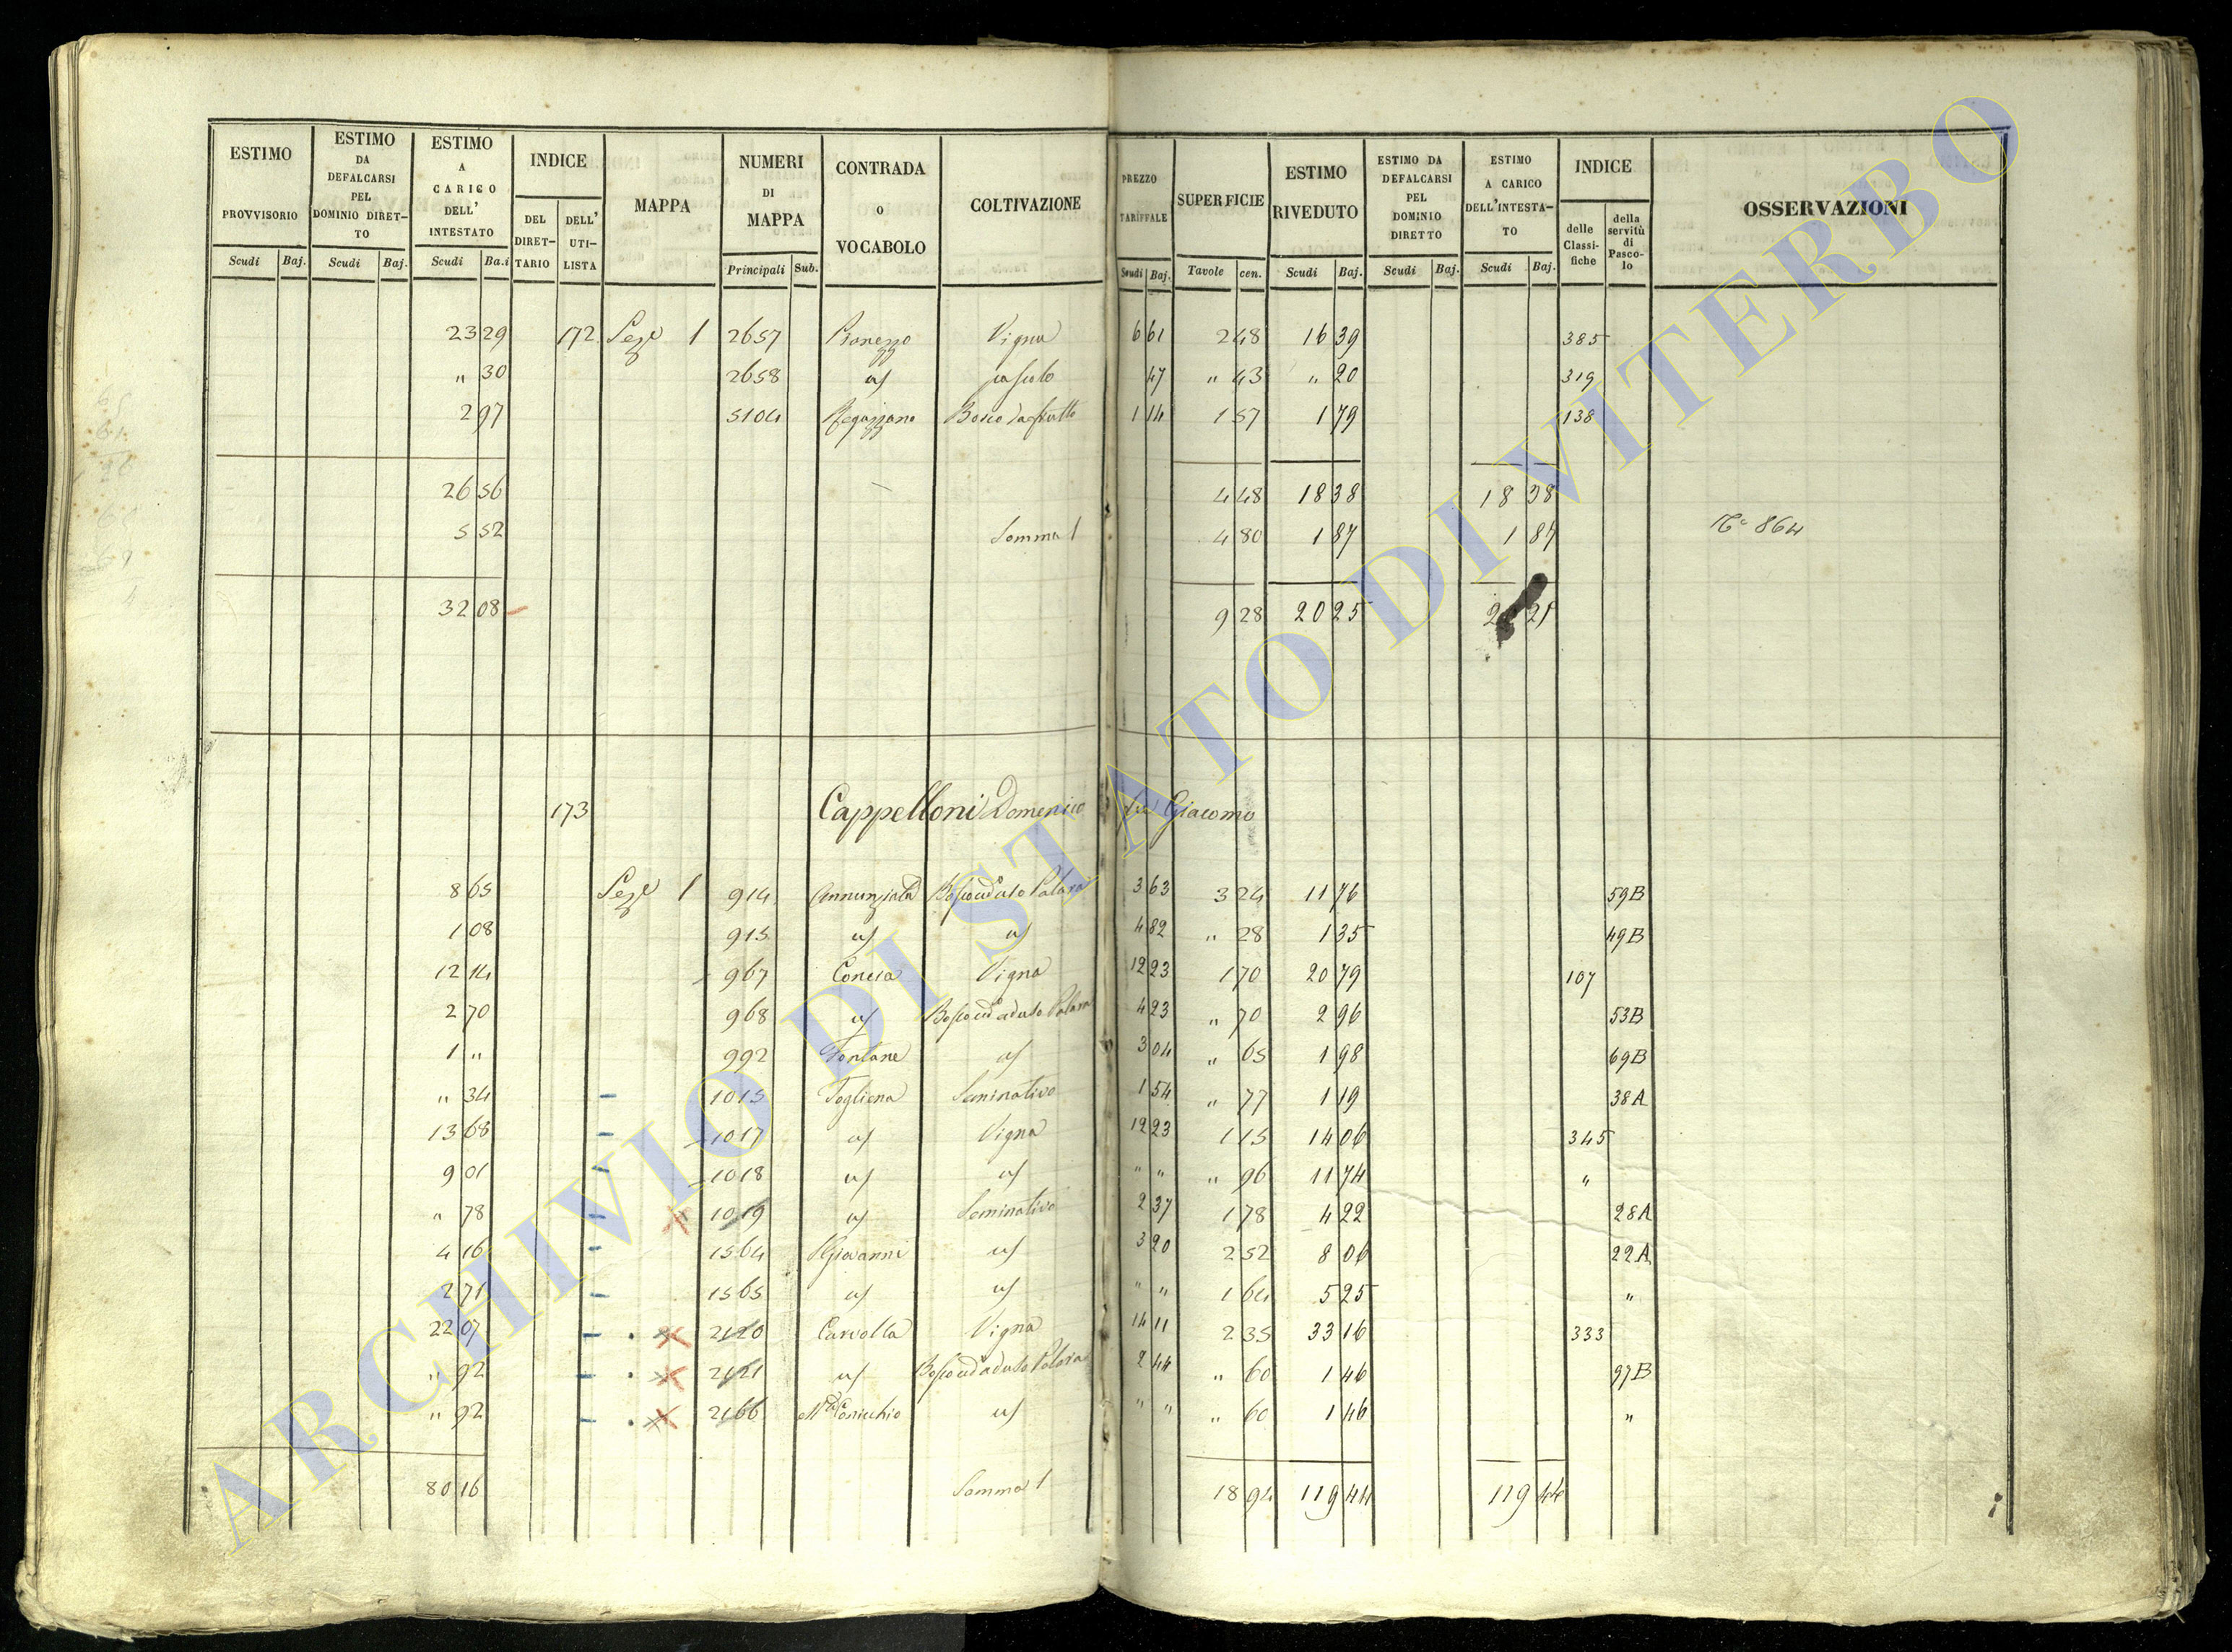 ESTIMO PROVVISORIO Scudi Baj.
ESTIMO DA DEFALCARSI PEL DOMINIO DIRETTO Scudi Baj.
ESTIMO A CARICO DELL' INTESTATO Scudi Ba.i
INDICE DEL DIRETTARIO DELL' UTILISTA
MAPPA
NUMERI DI MAPPA Principali Sub.
CONTRADA O VOCABOLO
COLTIVAZIONE
PREZZO TARIFFALE Scudi Baj.
SUPERFICIE Tavole cen.
ESTIMO RIVEDUTO Scudi Baj.
ESTIMO DA DEFALCARSI PEL DOMINIO DIRETTO Scudi Baj.
ESTIMO A CARICO DELL'INTESTATO Scudi Baj.
INDICE delle Classifiche della servitù di Pascolo
OSSERVAZIONI
23 29 172 Sez.e 1 2657 Vigna 6 61 2 48 16 39 385
" 30 2658 id pascolo 47 " 43 " 20 319
2 97 5104 Bosco da frutto 1 14 1 57 1 79 138
26 56 4 48 18 38 18 38
5 52 Somma 1 4 80 1 87 1 87 N.° 864
32 08 9 28 20 25 25
173 Cappelloni Domenico fu Giacomo
8 65 Sez.e 1 914 Annunziata Bosco ced.o ad uso Palara 3 63 3 24 11 76 59B
1 08 915 id id 4 82 " 28 1 35 49B
12 14 967 Conica Vigna 12 23 1 70 20 79 107
2 70 968 id Bosco ced.o ad uso Palara 4 23 " 70 2 96 53B
1 " 992 Fontane id 3 04 " 65 1 98 69B
" 34 1015 Fogliena Seminativo 1 54 " 77 1 19 38A
13 68 1017 id Vigna 12 23 1 15 14 06 345
9 01 1018 id id " " " 96 11 74 "
" 78 1019 id Seminativo 2 37 1 78 4 22 28A
4 16 1564 S Giovanni id 3 20 2 52 8 06 22A
2 71 1565 id id " " 1 64 5 25 "
22 07 2120 Carvolla Vigna 14 11 2 35 33 16 333
" 92 2121 id Bosco ced.o ad uso Palara 2 44 " 60 1 46 97B
" 92 2166 id " " " 60 1 46 "
80 16 Somma 1 18 94 119 44 119 44
ARCHIVIO DI STATO DI VITERBO